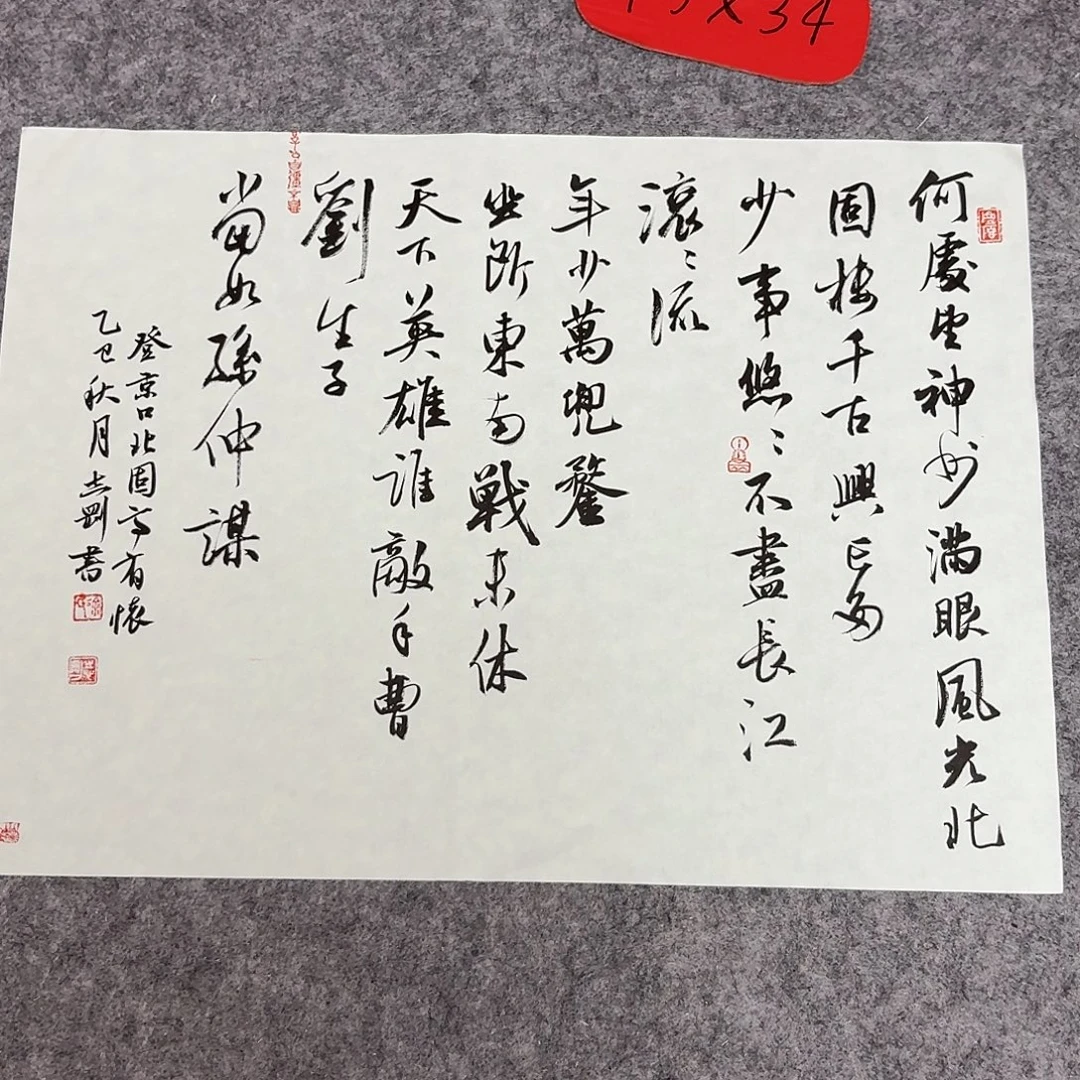 何處望神州滿眼風光北
固樓千古興亡多
少事悠〻不盡長江
滾〻流
年少萬兜鍪
坐斷東南戰未休
天下英雄誰敵手曹
劉生子
當如孫仲謀
登京口北固亭有懷
乙巳秋月志剛書
X34